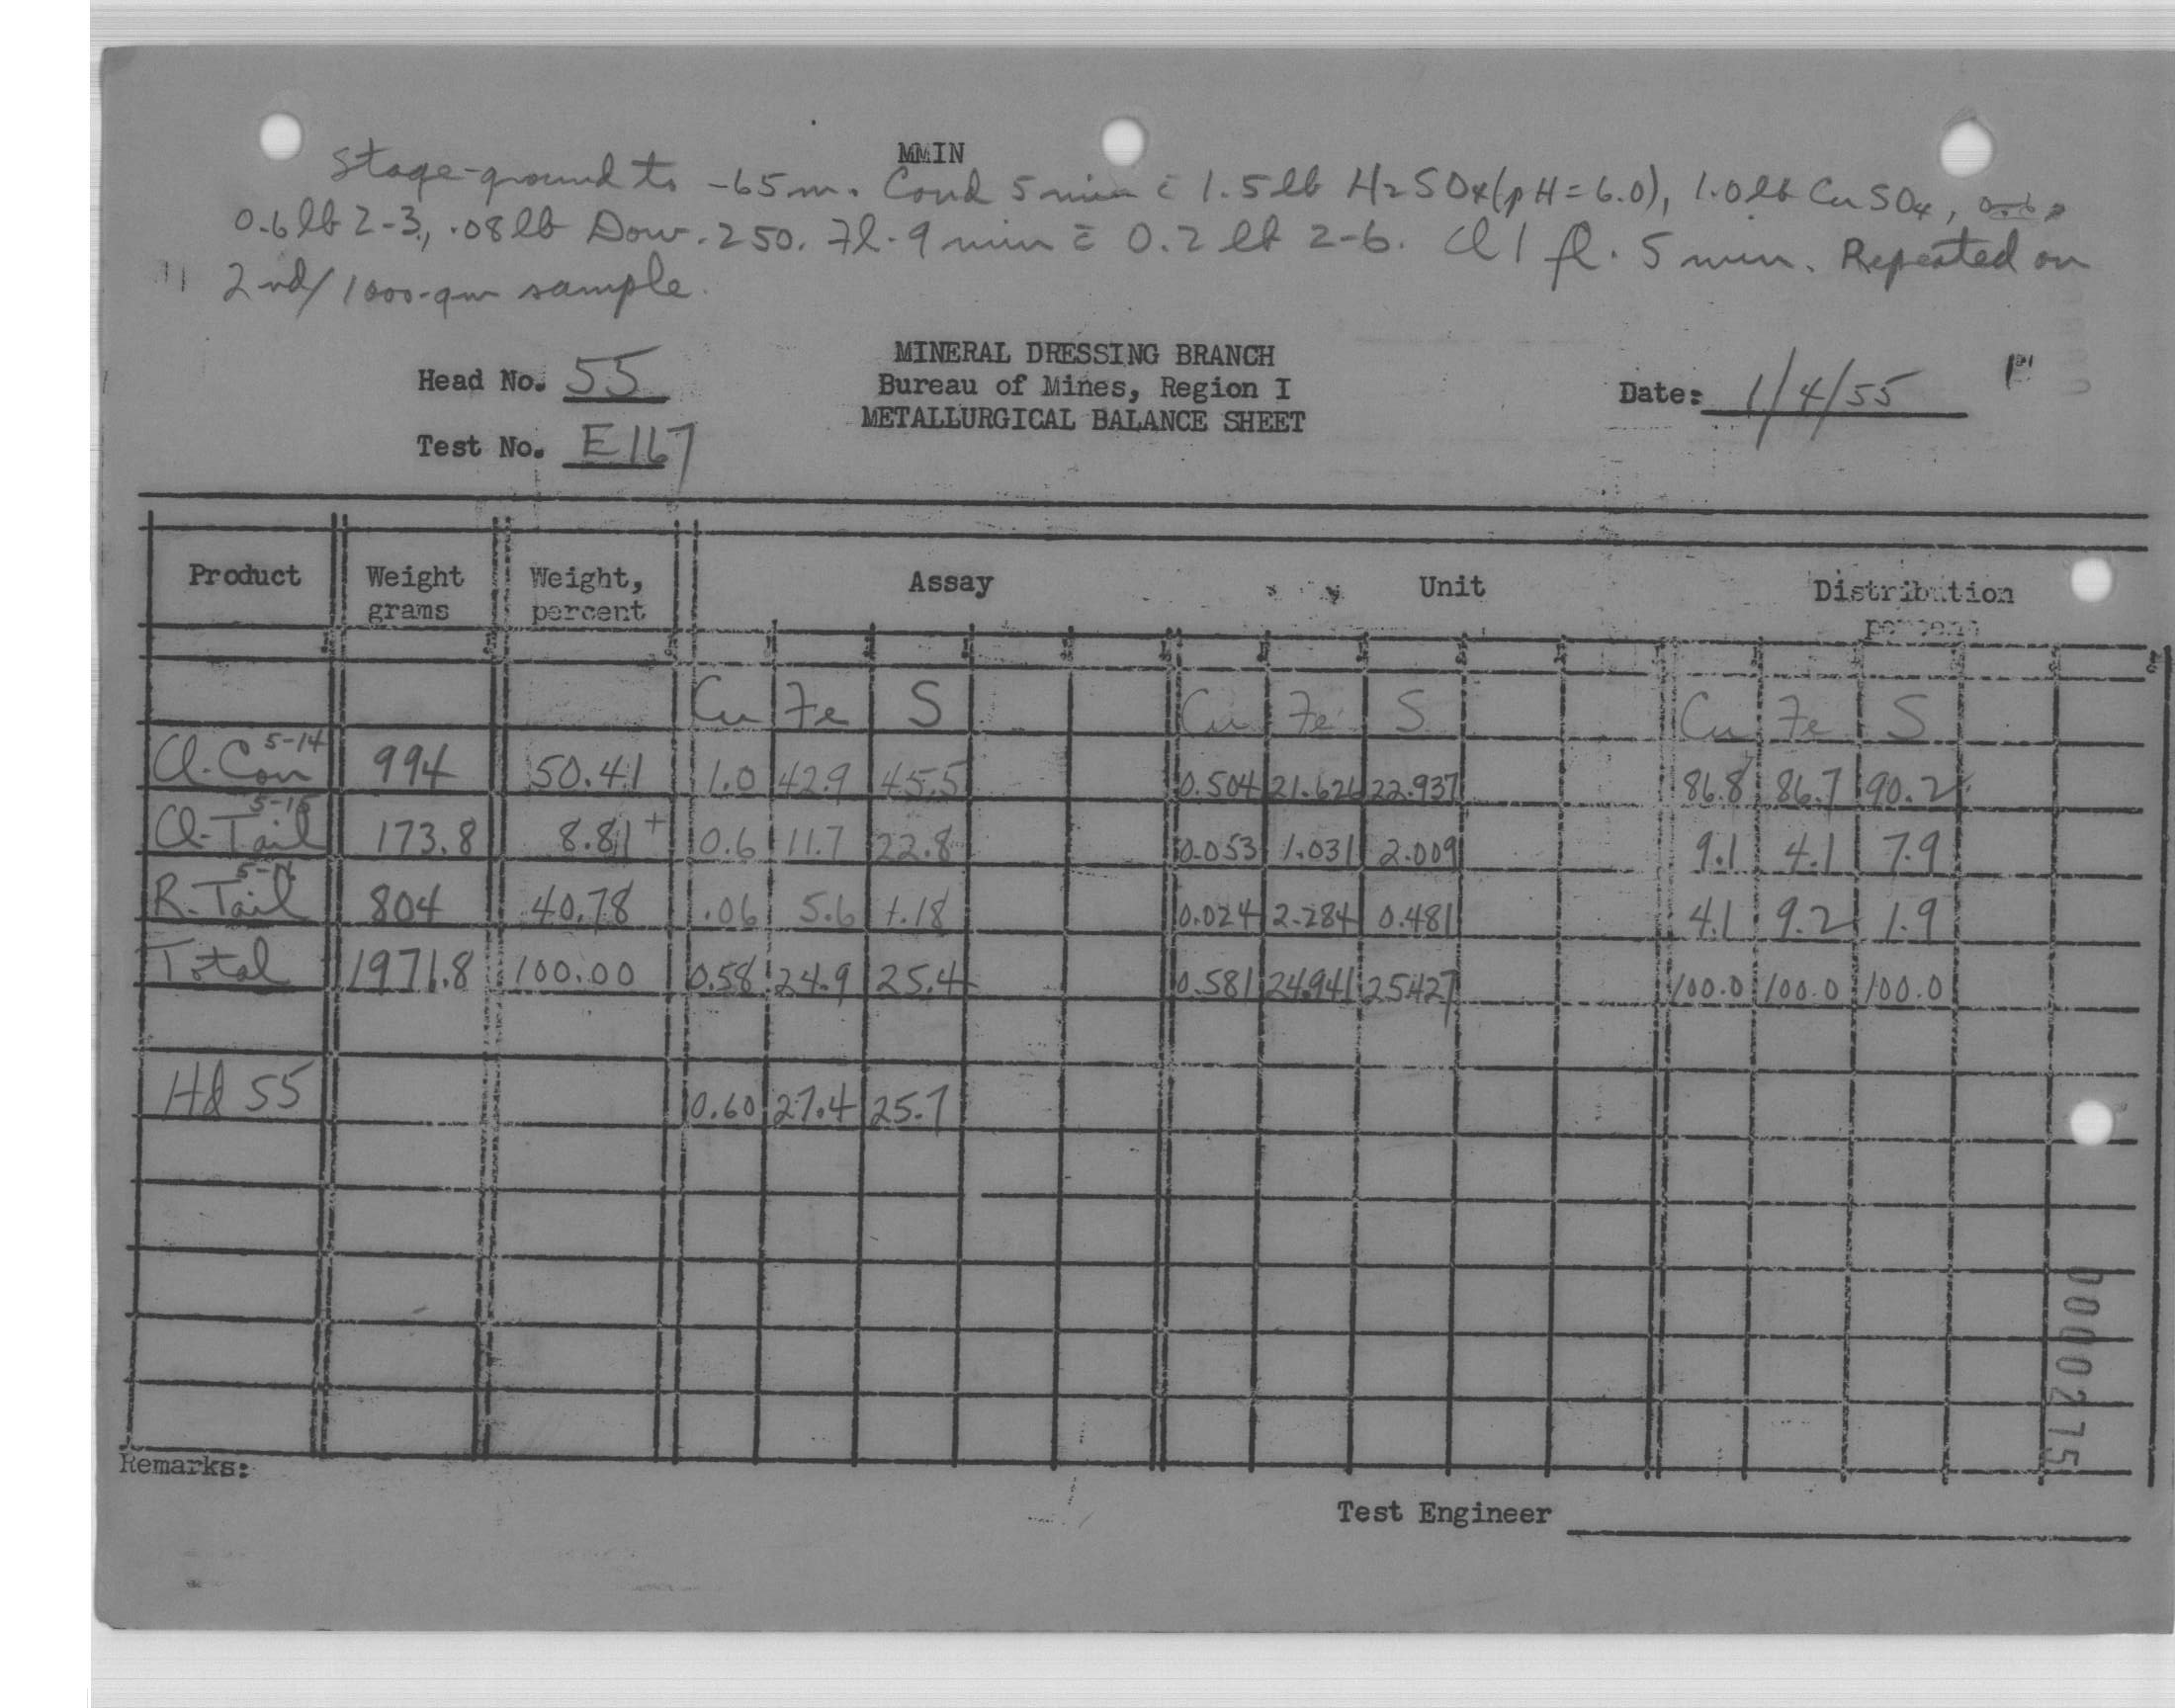 MMIN
Stage-ground to -65m. Cond 5 min c̄ 1.5 lb H2SO4 (pH=6.0), 1.0 lb CuSO4,
0.6 lb Z-3, .08 lb Dow-250. Fl. 9 min c̄ 0.2 lb Z-6. Cl 1 fl. 5 min. Repeated on
2nd/1000-gm sample.
MINERAL DRESSING BRANCH
Head No. 55 Bureau of Mines, Region I Date: 1/4/55
METALLURGICAL BALANCE SHEET
Test No. E167
Product Weight grams Weight, percent Assay Unit Distribution percent
Cu Fe S Cu Fe S Cu Fe S
Cl-Con 5-14 994 50.41 1.0 42.9 45.5 0.504 21.626 22.937 86.8 86.7 90.2
Cl-Tail 5-15 173.8 8.81+ 0.6 11.7 22.8 0.053 1.031 2.009 9.1 4.1 7.9
R-Tail 5-16 804 40.78 .06 5.6 1.18 0.024 2.284 0.481 4.1 9.2 1.9
Total 1971.8 100.00 0.58 24.9 25.4 0.581 24.941 25.427 100.0 100.0 100.0
Hd 55 0.60 27.4 25.7
Remarks:
Test Engineer
0000275